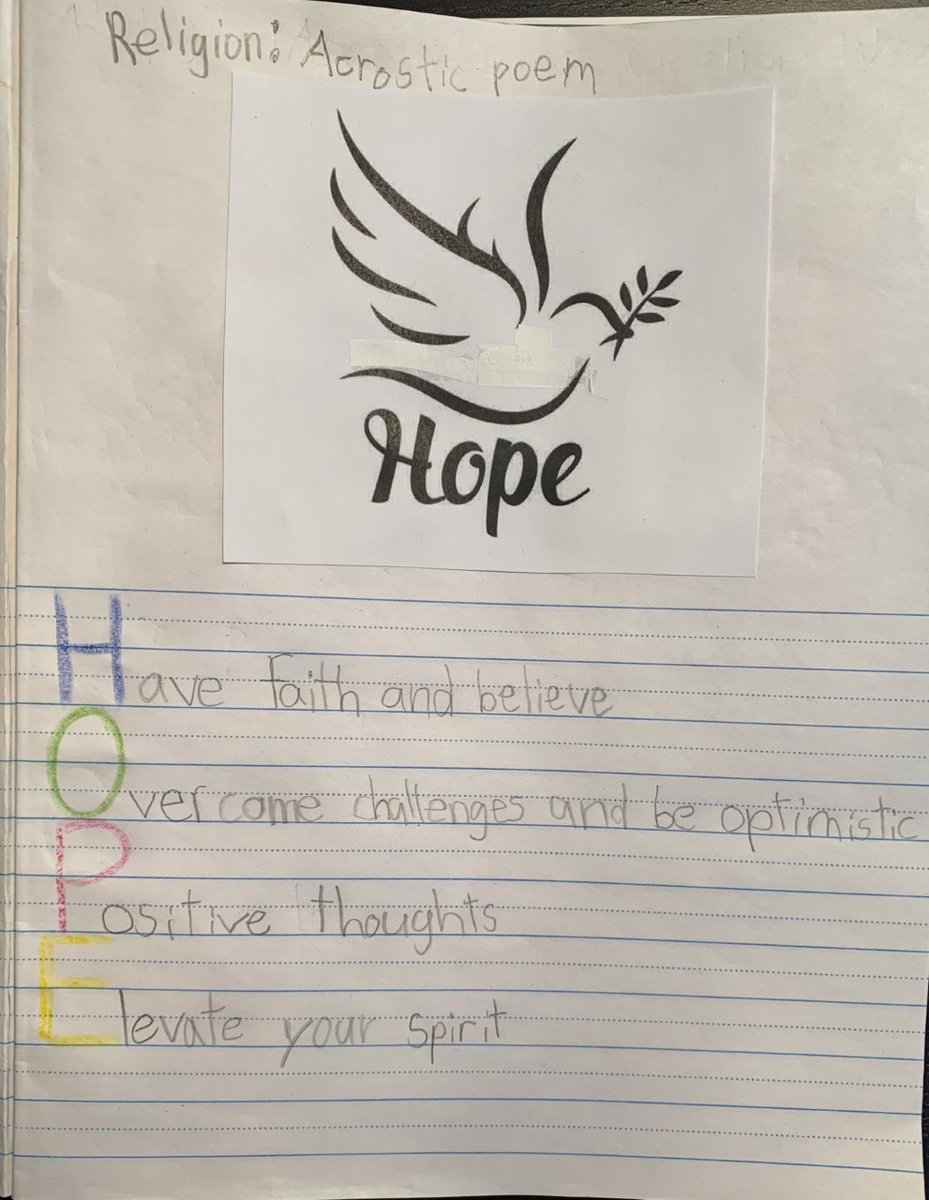 Religion: Acrostic poem
Hope
Have faith and believe
Overcome challenges and be optimistic
Positive thoughts
Elevate your spirit